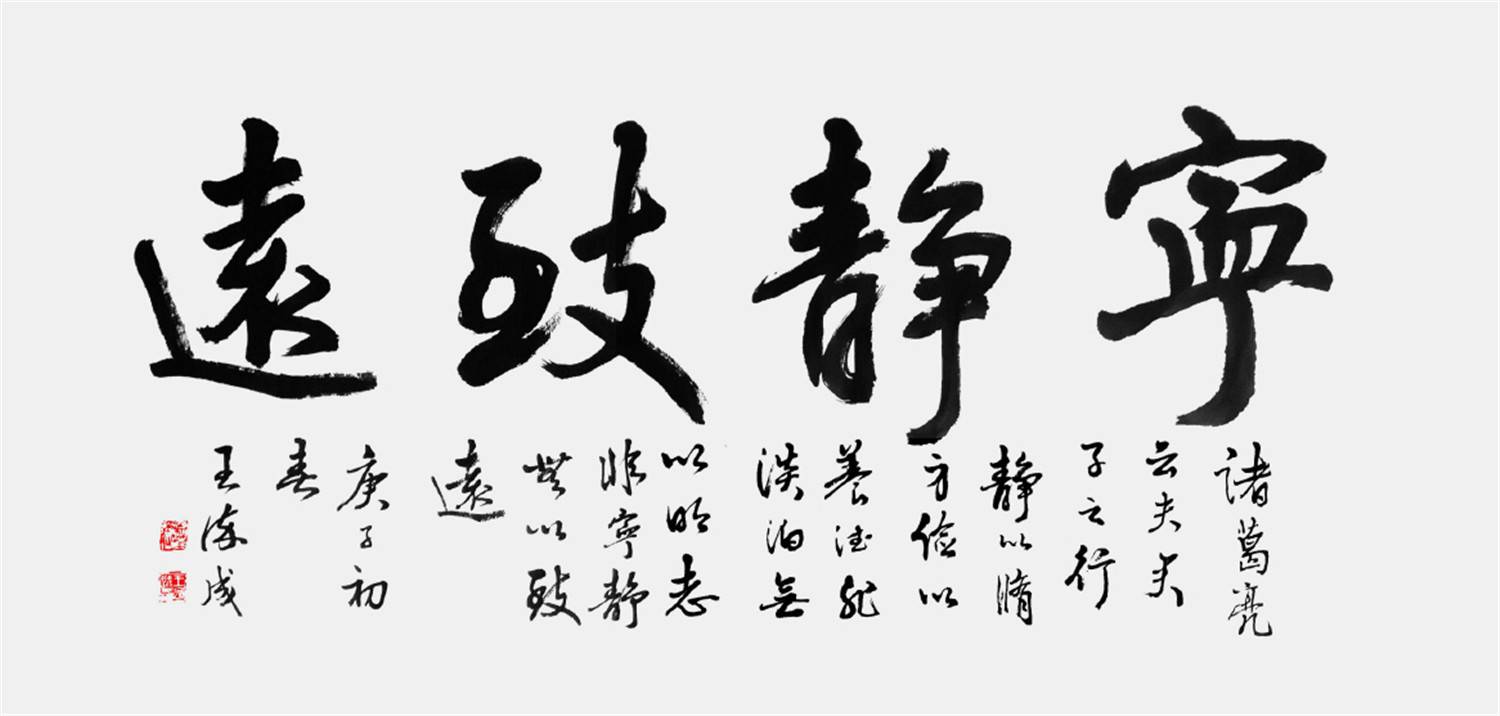 寧静致遠
諸葛亮
云夫君
子之行
静以脩
身俭以
養德非
淡泊無
以明志
非寧静
無以致
遠
庚子初
春
王成